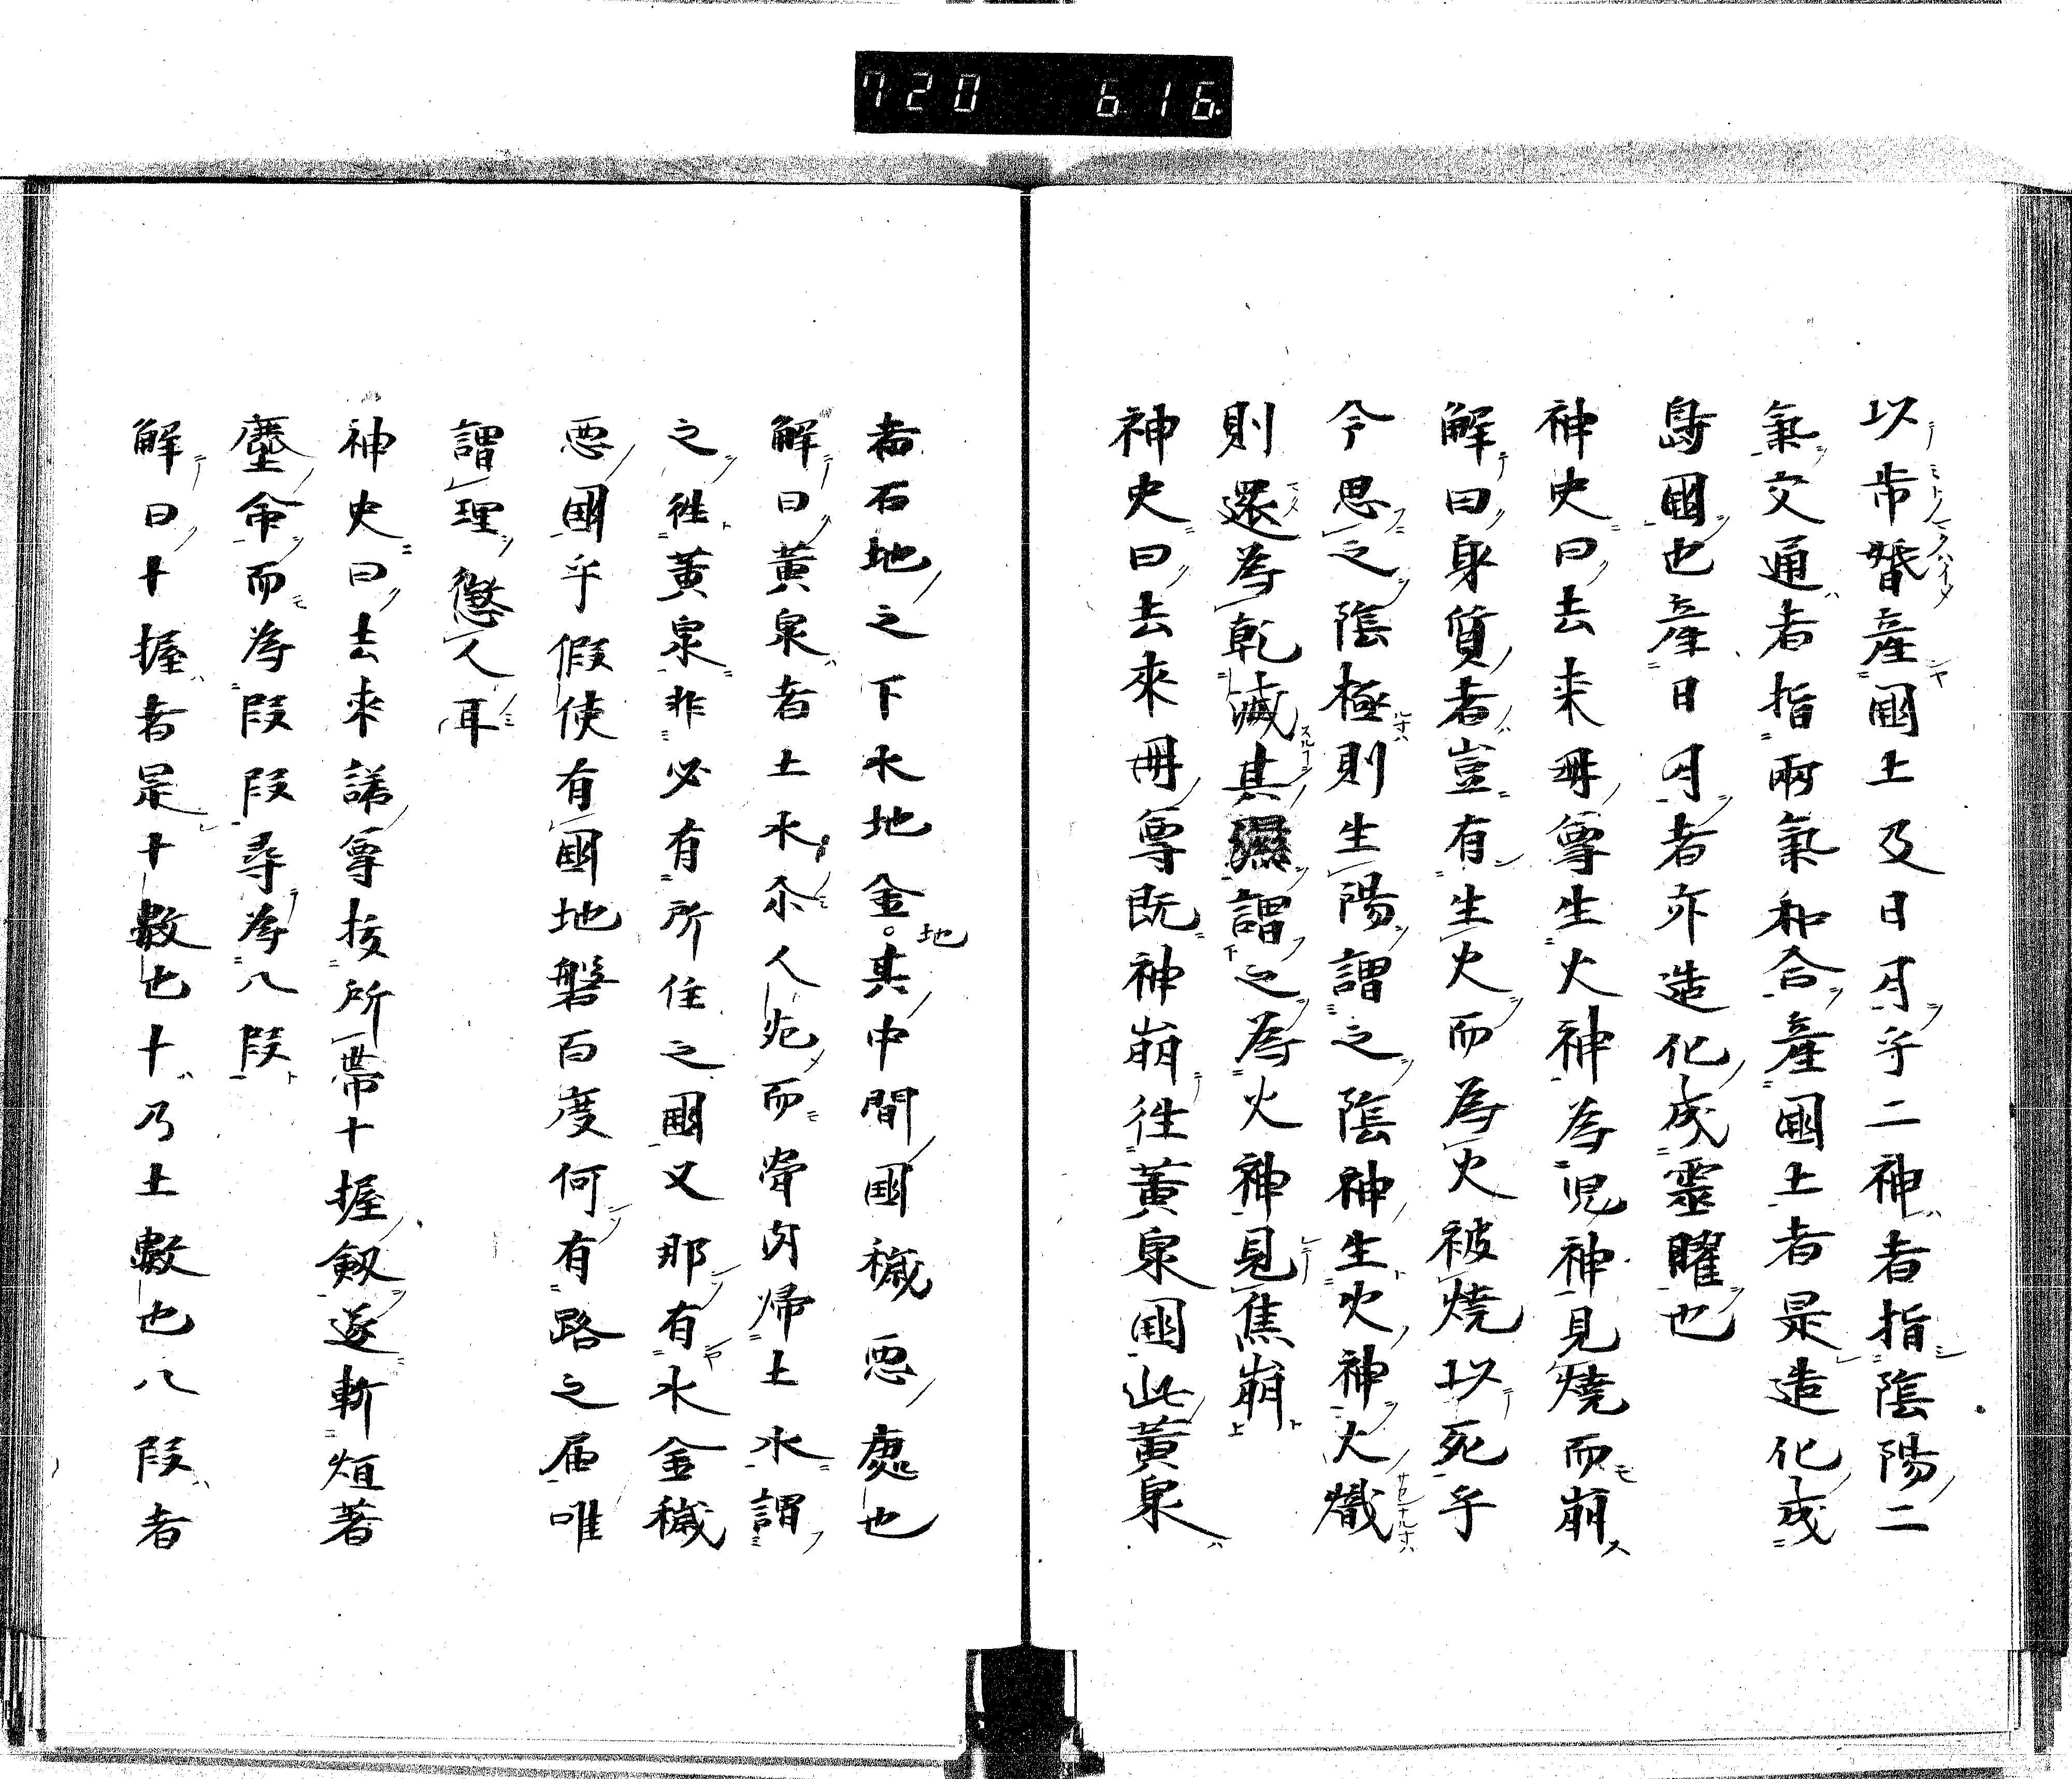 720 616.
以帀婚産國土及日月乎二神者指陰陽二
氣交通者指兩氣和合産國土者是造化成
島國也産日月者亦造化成靈曜也
神史曰去来冊尊生火神為児神見燒而崩
解曰身質者豈有生火而為火被燒以死乎
今思之陰極則生陽謂之陰神生火神火熾
則還為乾滅其濕謂之為火神見焦崩
神史曰去來冊尊既神崩徃黄泉國此黄泉
者石地之下水地金地其中間國穢悪處也
解曰黄泉者土水尒人死而骨肉帰土水謂
之徃黄泉非必有所住之國又那有水金穢
悪國乎假使有國地磐百度何有路之届唯
謂理懲人耳
神史曰去来諾尊抜所帯十握劔遂斬烜著
塵命而為段段尋為八段
解曰十握者是十數也十乃土數也八段者